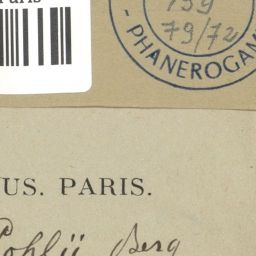 Paris
159
79/72
- PHANEROGAM
US. PARIS.
Pohlii Berg